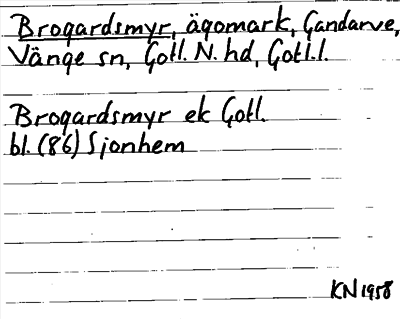 Brogardsmyr, ägomark, Gandarve,
Vänge sn, Gotl. N. hd, Gotl.l.
Brogardsmyr ek Gotl.
bl. (86) Sjonhem
KN 1958